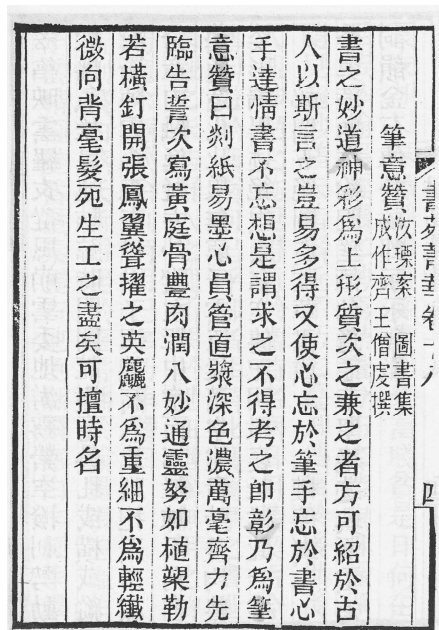 書苑菁華卷十八
四
筆意贊
汝瑮案 圖書集
成作齊王僧虔撰
書之妙道神彩爲上形質次之兼之者方可紹於古
人以斯言之豈易多得又使心忘於筆手忘於書心
手達情書不忘想是謂求之不得考之即彰乃爲筆
意贊曰剡紙易墨心員管直漿深色濃萬毫齊力先
臨告誓次寫黃庭骨豐肉潤八妙通靈努如植槊勒
若橫釘開張鳳翼聳擢之英麤不爲重細不爲輕纖
微向背毫髮死生工之盡矣可擅時名